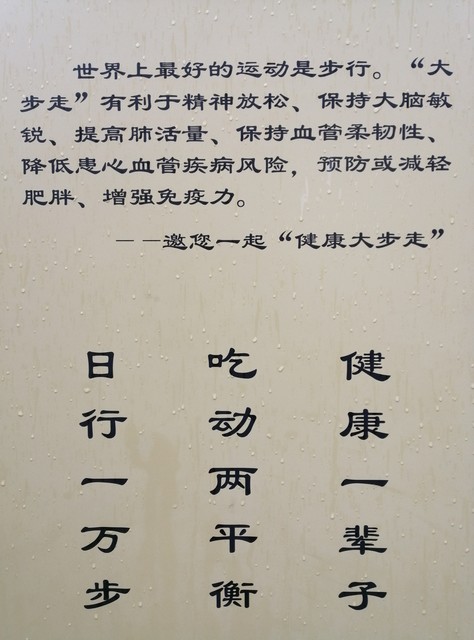 世界上最好的运动是步行。“大
步走”有利于精神放松、保持大脑敏
锐、提高肺活量、保持血管柔韧性、
降低患心血管疾病风险，预防或减轻
肥胖、增强免疫力。
——邀您一起“健康大步走”
日行一万步
吃动两平衡
健康一辈子